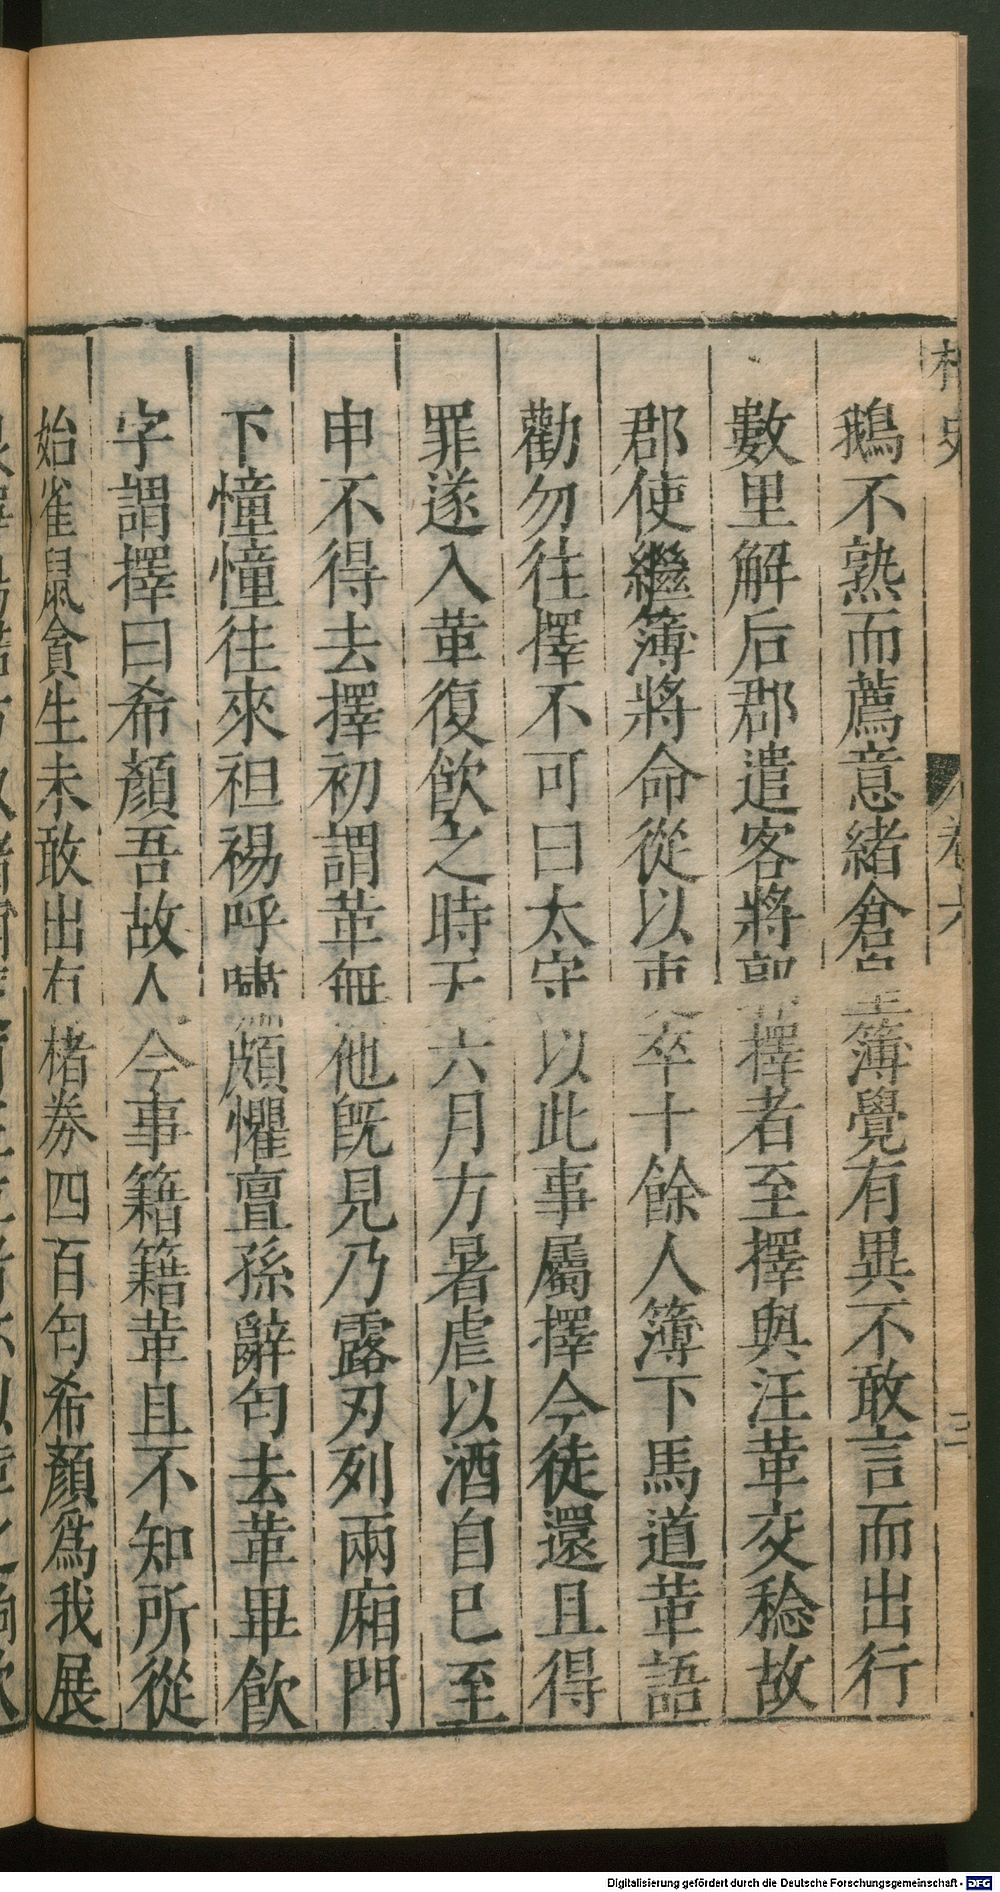 桯史
卷六
三
鵝不熟而薦意緒倉皇簿覺有異不敢言而出行
數里解后郡遣客將郭擇者至擇與汪革交稔故
郡使繼簿將命從以吏卒十餘人簿下馬道革語
勸勿往擇不可曰太守以此事屬擇今徒還且得
罪遂入革復飲之時天六月方暑虐以酒自巳至
申不得去擇初謂革無他既見乃露刃列兩廂門
下憧憧往來袒裼呼嘯頗懼亶孫辭匄去革畢飲
字謂擇曰希顏吾故人今事籍籍革且不知所從
始雀鼠貪生未敢出右楮券四百匄希顏為我展
Digitalisierung gefördert durch die Deutsche Forschungsgemeinschaft - DFG